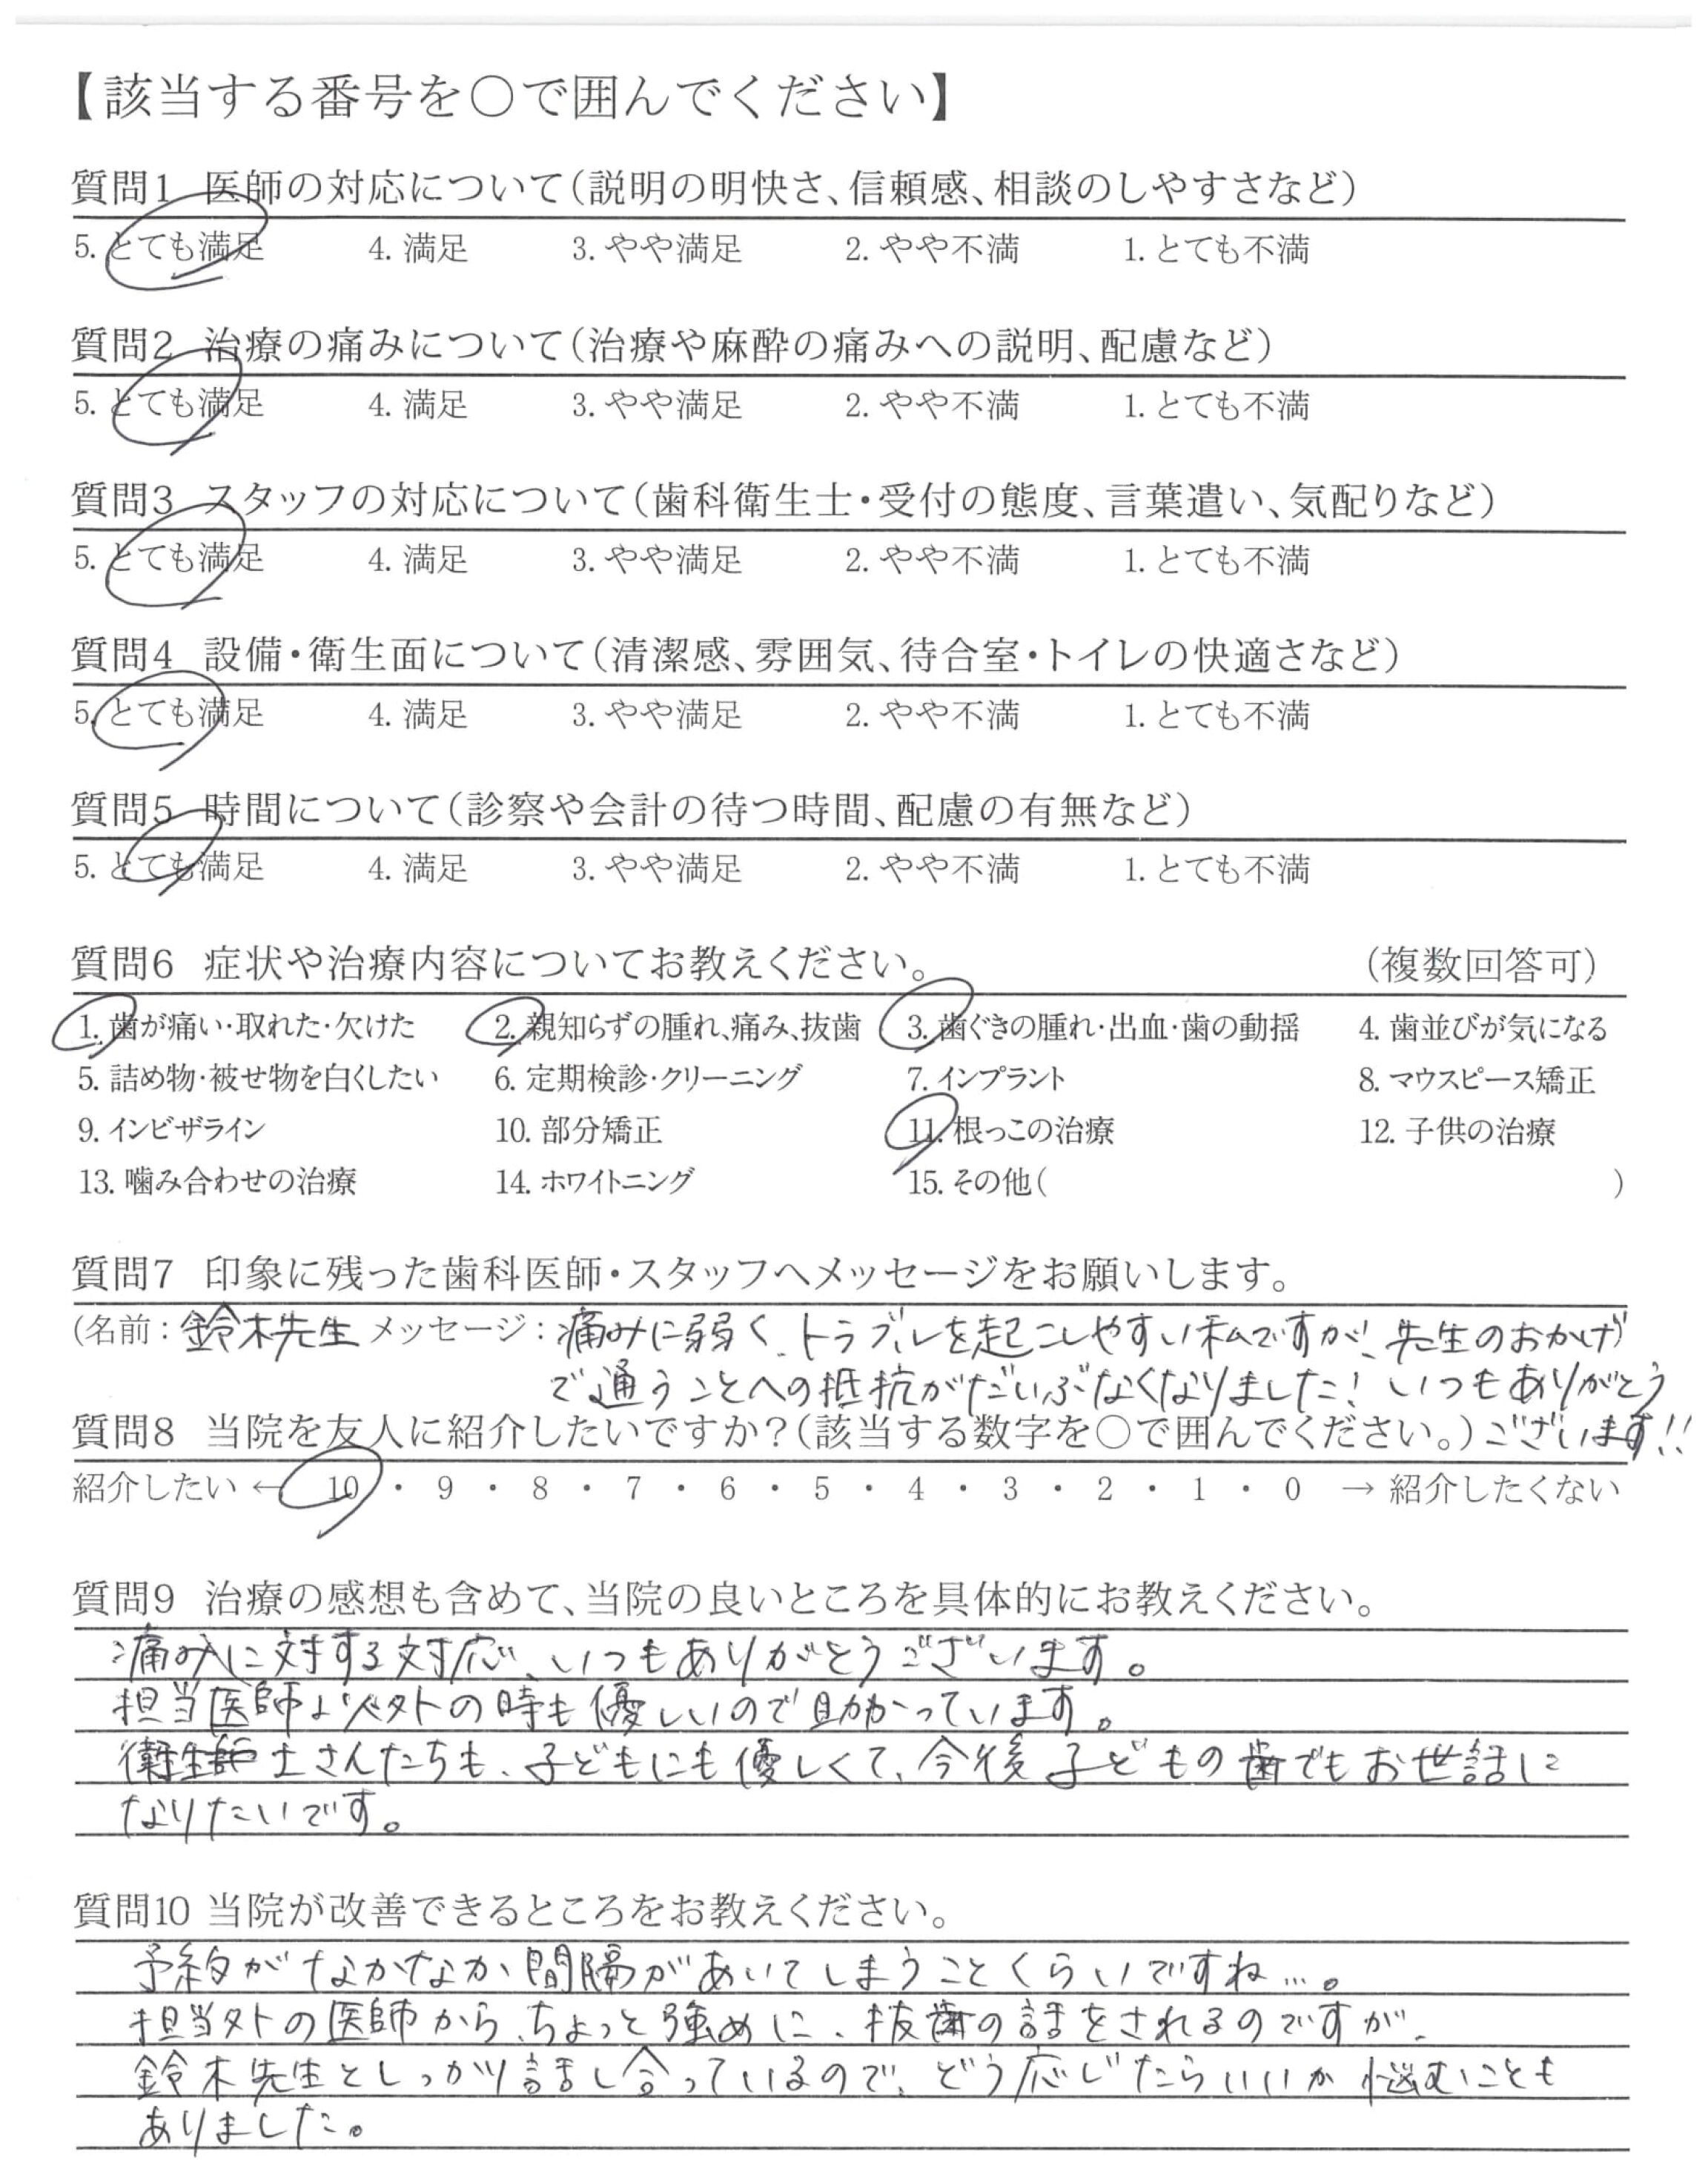 【該当する番号を○で囲んでください】
質問1 医師の対応について(説明の明快さ、信頼感、相談のしやすさなど)
5. とても満足 4. 満足 3. やや満足 2. やや不満 1. とても不満
質問2 治療の痛みについて(治療や麻酔の痛みへの説明、配慮など)
5. とても満足 4. 満足 3. やや満足 2. やや不満 1. とても不満
質問3 スタッフの対応について(歯科衛生士・受付の態度、言葉遣い、気配りなど)
5. とても満足 4. 満足 3. やや満足 2. やや不満 1. とても不満
質問4 設備・衛生面について(清潔感、雰囲気、待合室・トイレの快適さなど)
5. とても満足 4. 満足 3. やや満足 2. やや不満 1. とても不満
質問5 時間について(診察や会計の待つ時間、配慮の有無など)
5. とても満足 4. 満足 3. やや満足 2. やや不満 1. とても不満
質問6 症状や治療内容についてお教えください。 (複数回答可)
1. 歯が痛い・取れた・欠けた 2. 親知らずの腫れ、痛み、抜歯 3. 歯ぐきの腫れ・出血・歯の動揺 4. 歯並びが気になる
5. 詰め物・被せ物を白くしたい 6. 定期検診・クリーニング 7. インプラント 8. マウスピース矯正
9. インビザライン 10. 部分矯正 11. 根っこの治療 12. 子供の治療
13. 噛み合わせの治療 14. ホワイトニング 15. その他( )
質問7 印象に残った歯科医師・スタッフへメッセージをお願いします。
(名前：鈴木先生 メッセージ：痛みに弱く、トラブルを起こしやすい私ですが、先生のおかげ
で通うことへの抵抗がだいぶなくなりました！いつもありがとう
質問8 当院を友人に紹介したいですか？(該当する数字を○で囲んでください。) ございます!!
紹介したい ← 10 ・ 9 ・ 8 ・ 7 ・ 6 ・ 5 ・ 4 ・ 3 ・ 2 ・ 1 ・ 0 → 紹介したくない
質問9 治療の感想も含めて、当院の良いところを具体的にお教えください。
痛みに対する対応、いつもありがとうございます。
担当医師以外の時も優しいので助かっています。
衛生士さんたちも、子どもにも優しくて、今後子どもの歯でもお世話に
なりたいです。
質問10 当院が改善できるところをお教えください。
予約がなかなか間隔があいてしまうことくらいですね…。
担当外の医師から、ちょっと強めに、抜歯の話をされるのですが、
鈴木先生としっかり話し合っているので、どう応じたらいいか悩むことも
ありました。